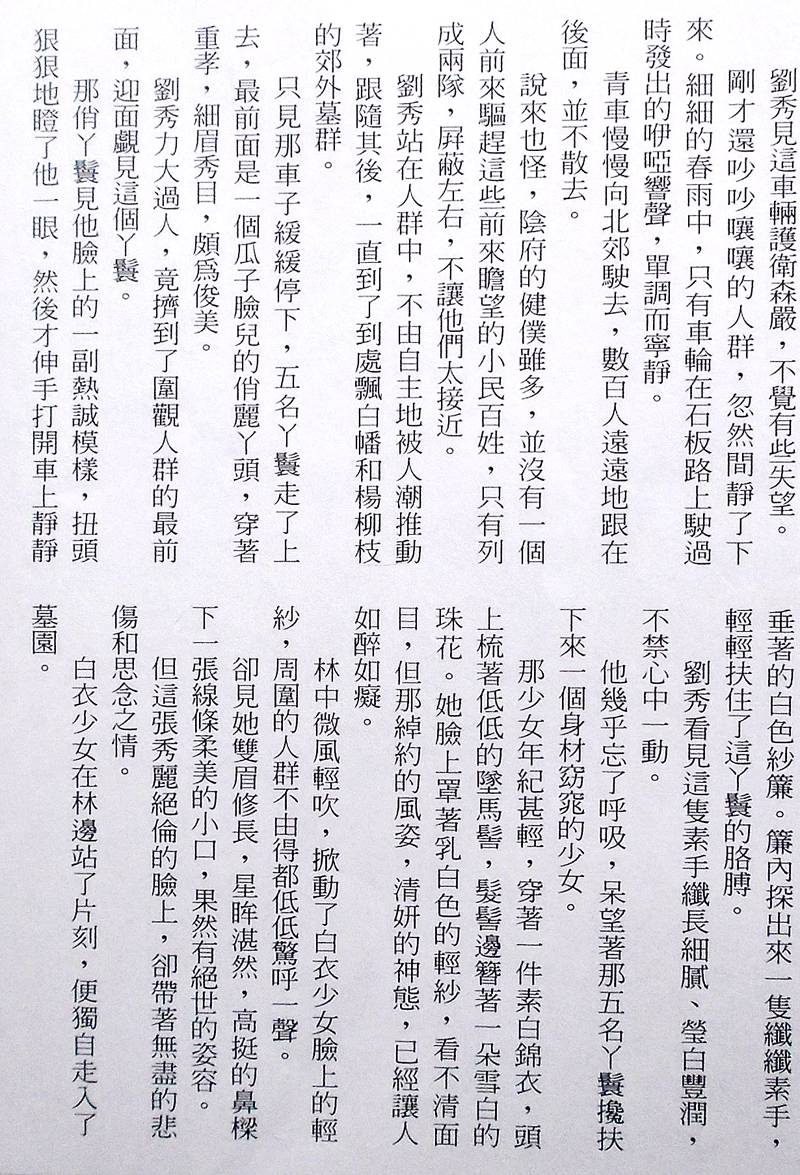 劉秀見這車輛護衛森嚴，不覺有些失望。
剛才還吵吵嚷嚷的人群，忽然間靜了下
來。細細的春雨中，只有車輪在石板路上駛過
時發出的咿啞響聲，單調而寧靜。
青車慢慢向北郊駛去，數百人遠遠地跟在
後面，並不散去。
說來也怪，陰府的健僕雖多，並沒有一個
人前來驅趕這些前來瞻望的小民百姓，只有列
成兩隊，屏蔽左右，不讓他們太接近。
劉秀站在人群中，不由自主地被人潮推動
著，跟隨其後，一直到了到處飄白幡和楊柳枝
的郊外墓群。
只見那車子緩緩停下，五名丫鬟走了上
去，最前面是一個瓜子臉兒的俏麗丫頭，穿著
重孝，細眉秀目，頗為俊美。
劉秀力大過人，竟擠到了圍觀人群的最前
面，迎面覷見這個丫鬟。
那俏丫鬟見他臉上的一副熱誠模樣，扭頭
狠狠地瞪了他一眼，然後才伸手打開車上靜靜
垂著的白色紗簾。簾內探出來一隻纖纖素手，
輕輕扶住了這丫鬟的胳膊。
劉秀看見這隻素手纖長細膩、瑩白豐潤，
不禁心中一動。
他幾乎忘了呼吸，呆望著那五名丫鬟攙扶
下來一個身材窈窕的少女。
那少女年紀甚輕，穿著一件素白錦衣，頭
上梳著低低的墜馬髻，髮髻邊簪著一朵雪白的
珠花。她臉上罩著乳白色的輕紗，看不清面
目，但那綽約的風姿，清妍的神態，已經讓人
如醉如癡。
林中微風輕吹，掀動了白衣少女臉上的輕
紗，周圍的人群不由得都低低驚呼一聲。
卻見她雙眉修長，星眸湛然，高挺的鼻樑
下一張線條柔美的小口，果然有絕世的姿容。
但這張秀麗絕倫的臉上，卻帶著無盡的悲
傷和思念之情。
白衣少女在林邊站了片刻，便獨自走入了
墓園。